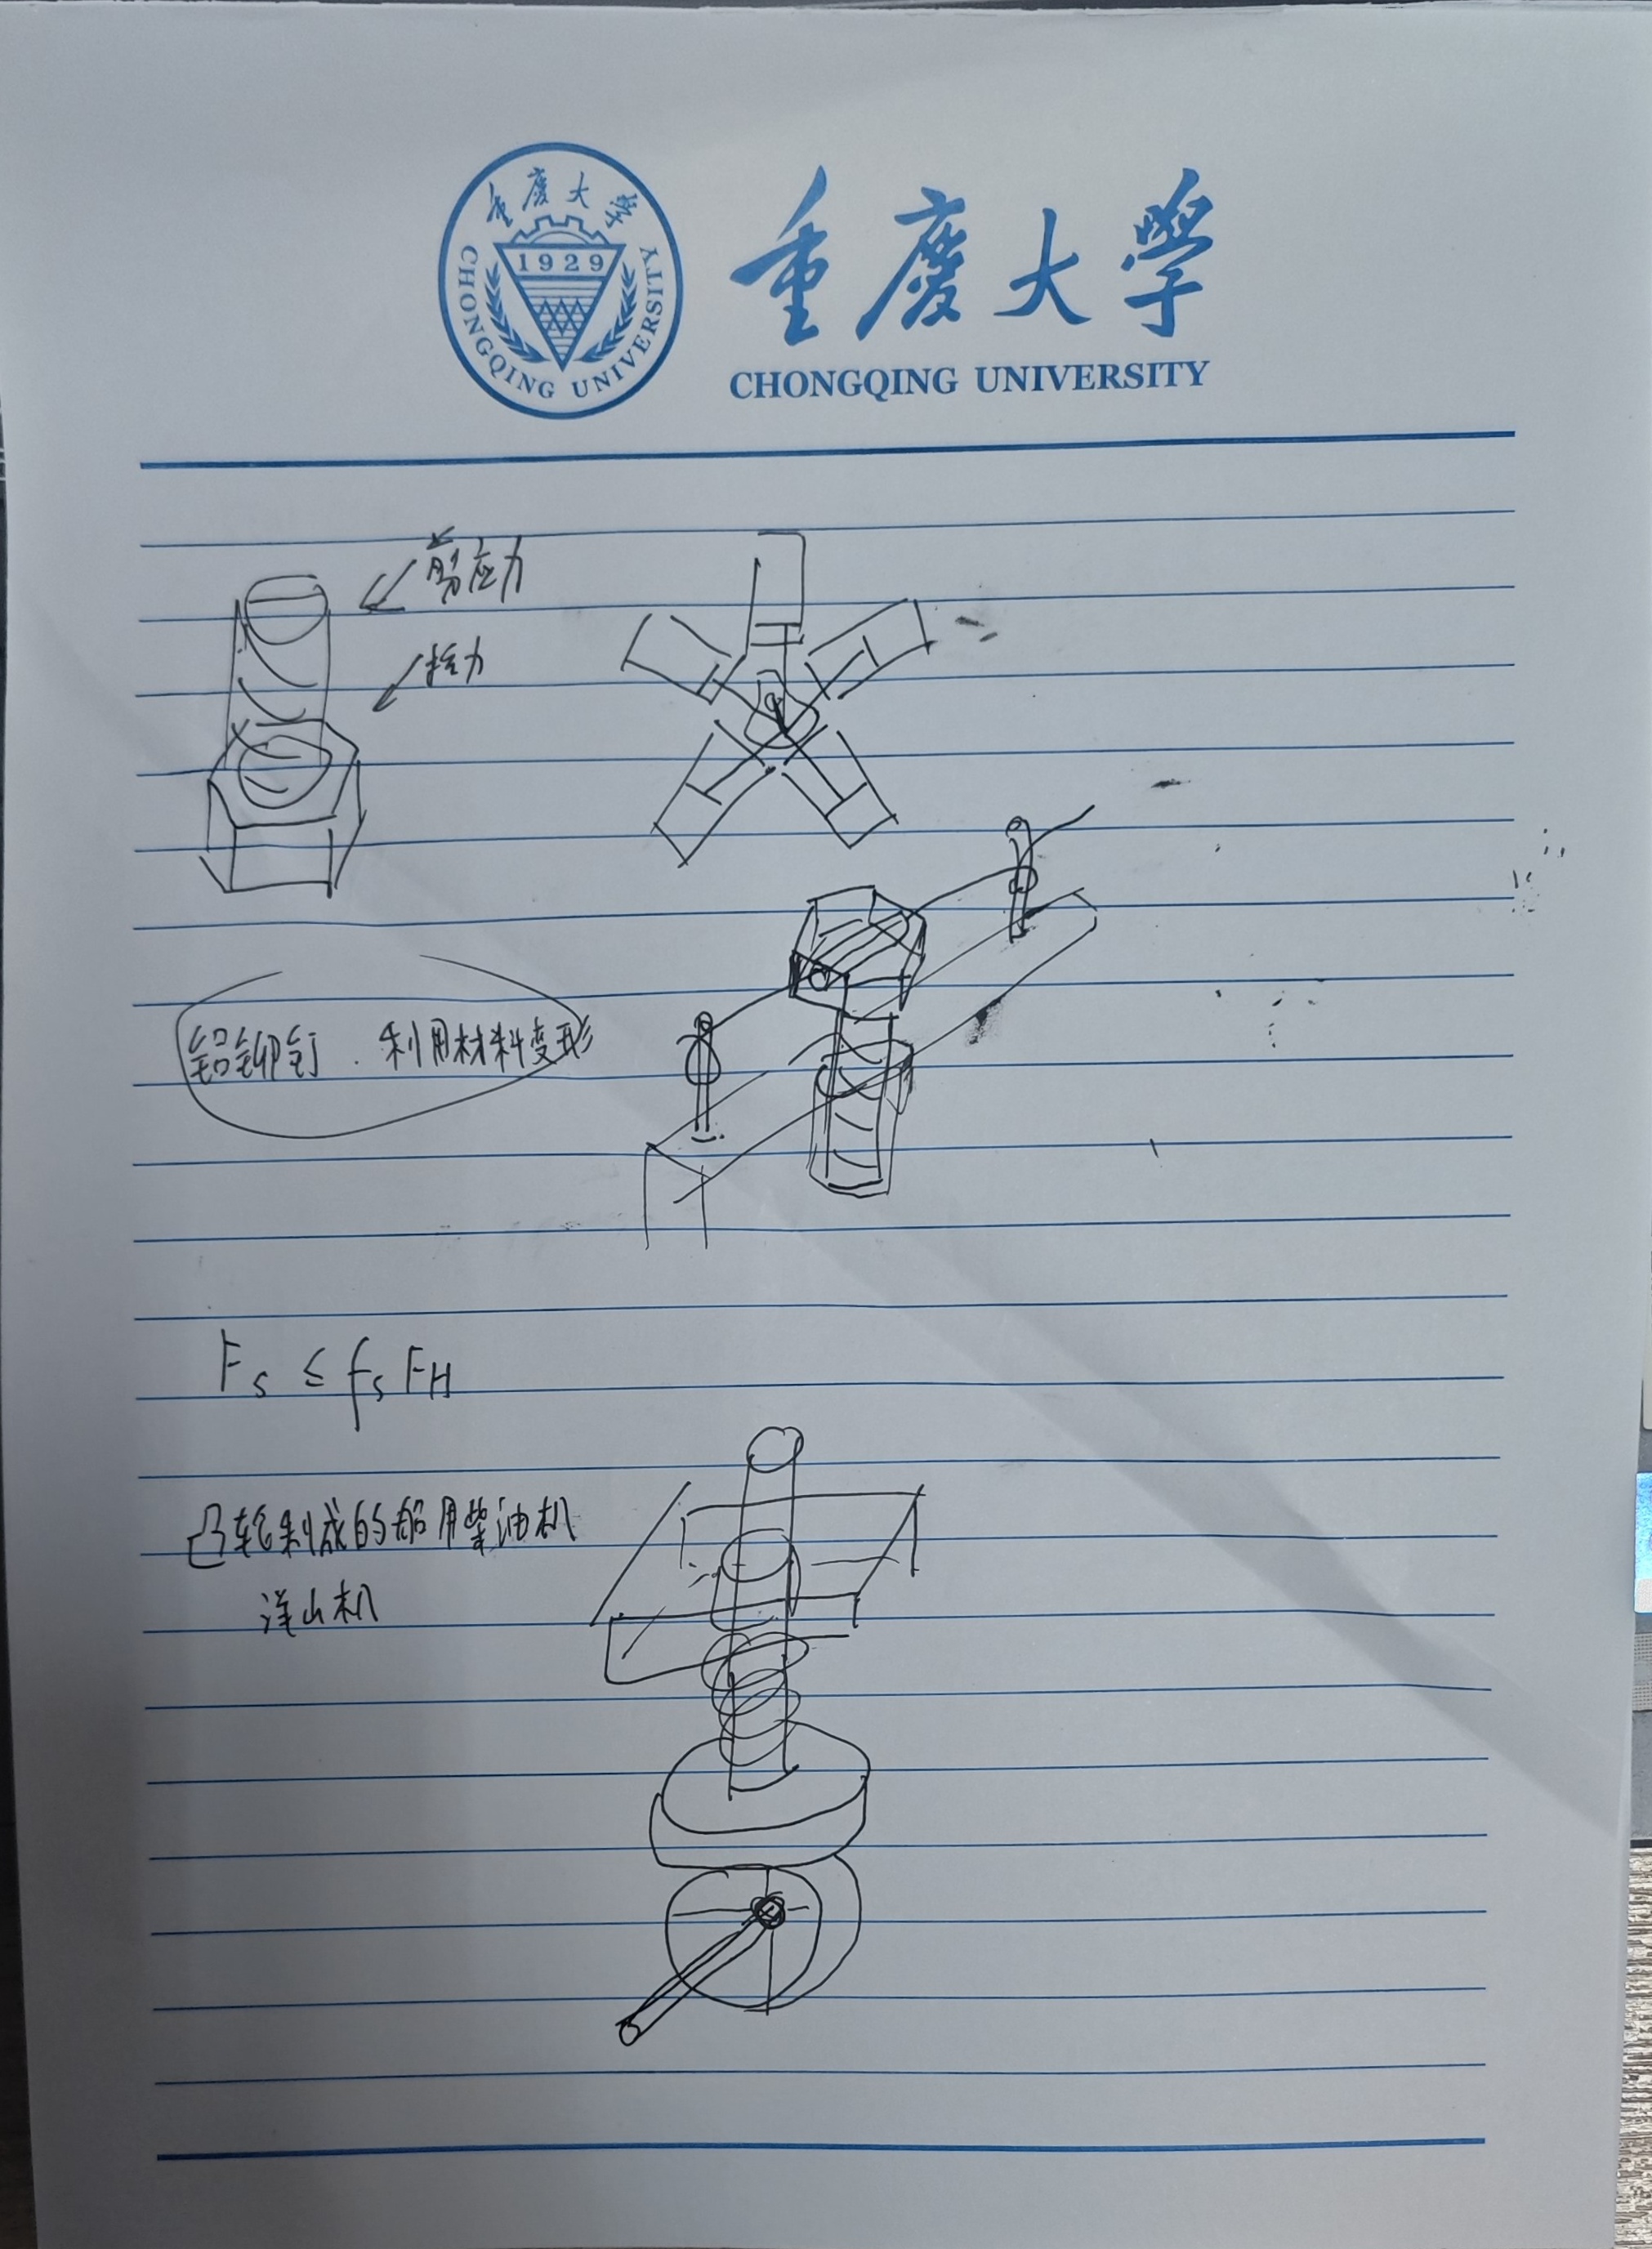 重慶大學
1929
CHONGQING UNIVERSITY
重慶大學
CHONGQING UNIVERSITY
剪应力
拉力
铝铆钉. 利用材料变形
Fs ≤ fs FH
凸轮制成的船用柴油机
洋山机